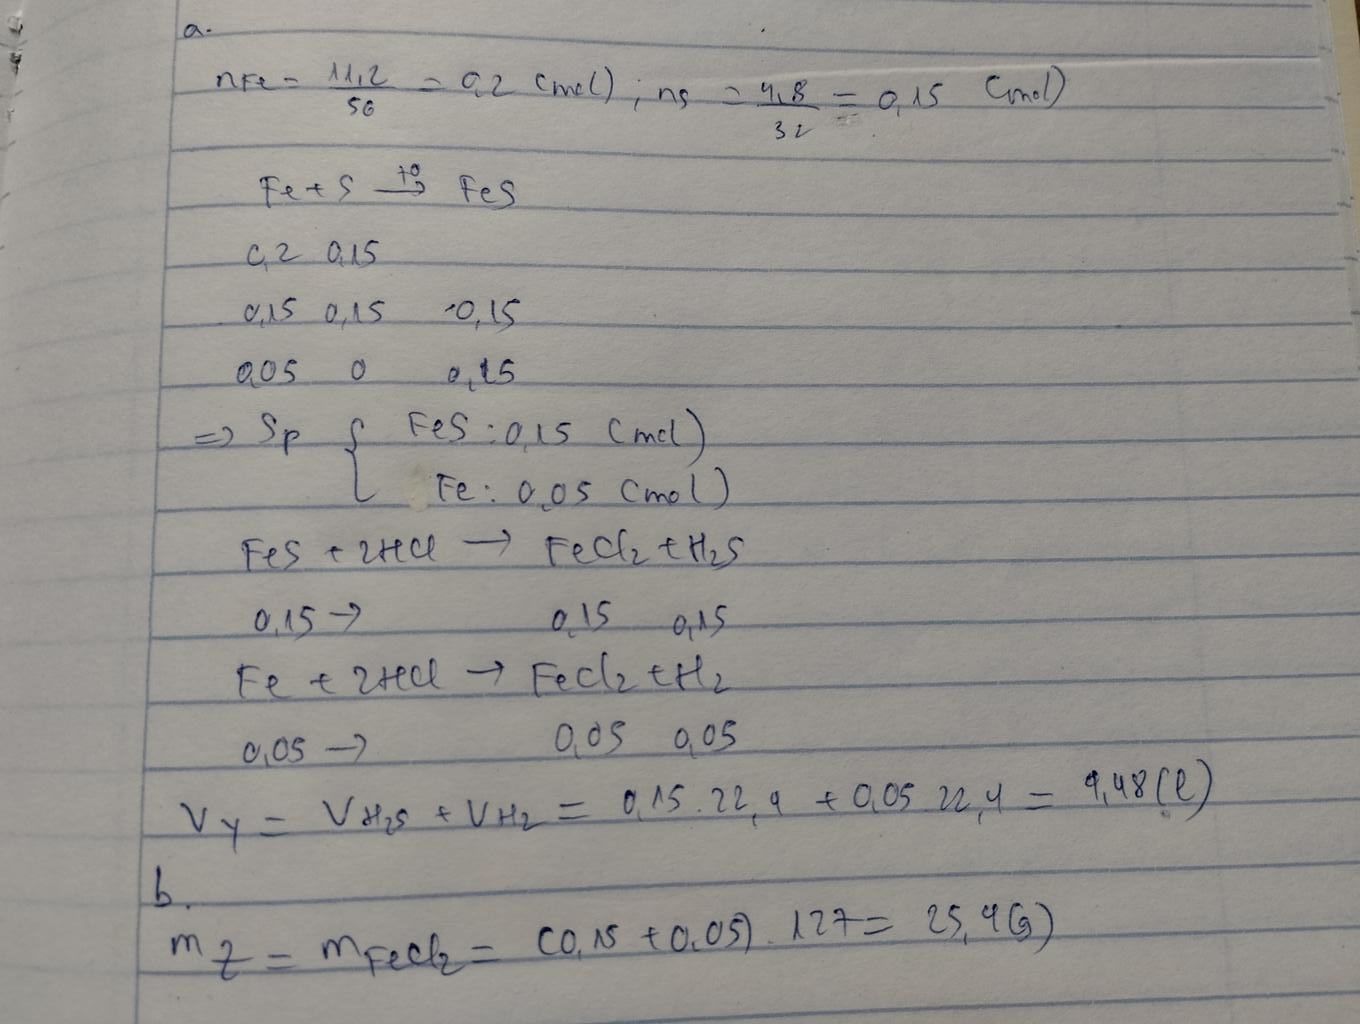 a.
nFe = 11,2/56 = 0,2 (mol), nS = 4,8/32 = 0,15 (mol)
Fe + S t°→ FeS
0,2 0,15
0,15 0,15 0,15
0,05 0 0,15
=> Sp { FeS : 0,15 (mol)
Fe : 0,05 (mol)
FeS + 2HCl → FeCl2 + H2S
0,15 → 0,15 0,15
Fe + 2HCl → FeCl2 + H2
0,05 → 0,05 0,05
VY = VH2S + VH2 = 0,15 . 22,4 + 0,05 22,4 = 4,48 (l)
b.
mZ = mFeCl2 = (0,15 + 0,05) . 127 = 25,4 (g)